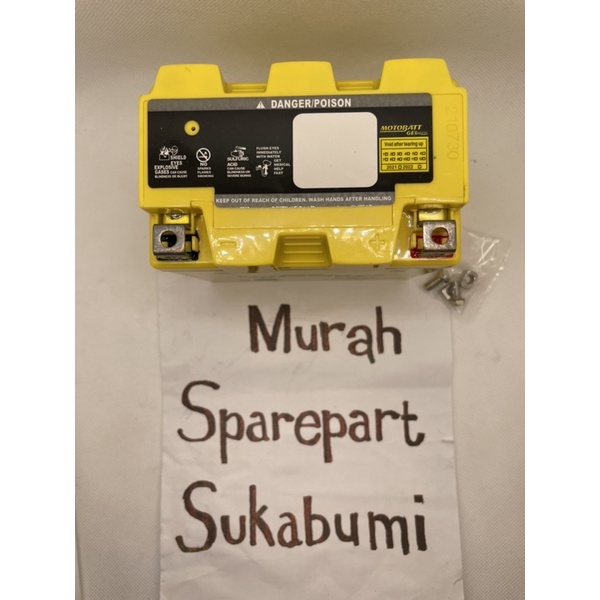 DANGER/POISON
SHIELD
EYES
EXPLOSIVE
GASES CAN CAUSE
BLINDNESS OR INJURY
NO
SPARKS
FLAMES
SMOKING
SULFURIC
ACID
CAN CAUSE
BLINDNESS OR
SEVERE BURNS
FLUSH EYES
IMMEDIATELY
WITH WATER
GET
MEDICAL
HELP
FAST
MOTOBATT
GEL
Void after tearing up
2021 2022
KEEP OUT OF REACH OF CHILDREN. WASH HANDS AFTER HANDLING
210730
Murah
Sparepart
Sukabumi